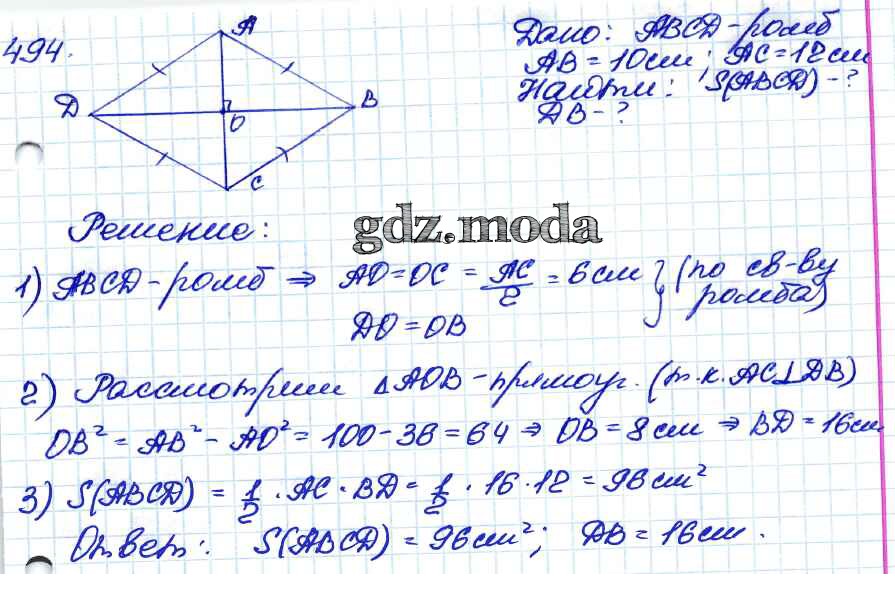 494.
A
D
B
O
C
Дано: ABCD - ромб
AB = 10 см; AC = 12 см
Найти: S(ABCD) - ?
DB - ?
Решение:
gdz.moda
1) ABCD - ромб ⇒ AO = OC = AC/2 = 6 см } (по св-ву ромба)
DO = OB
2) Рассмотрим △AOB - прямоуг. (т.к. AC⊥DB)
OB² = AB² - AO² = 100 - 36 = 64 ⇒ OB = 8 см ⇒ BD = 16 см
3) S(ABCD) = 1/2 · AC · BD = 1/2 · 16 · 12 = 96 см²
Ответ: S(ABCD) = 96 см²; DB = 16 см.